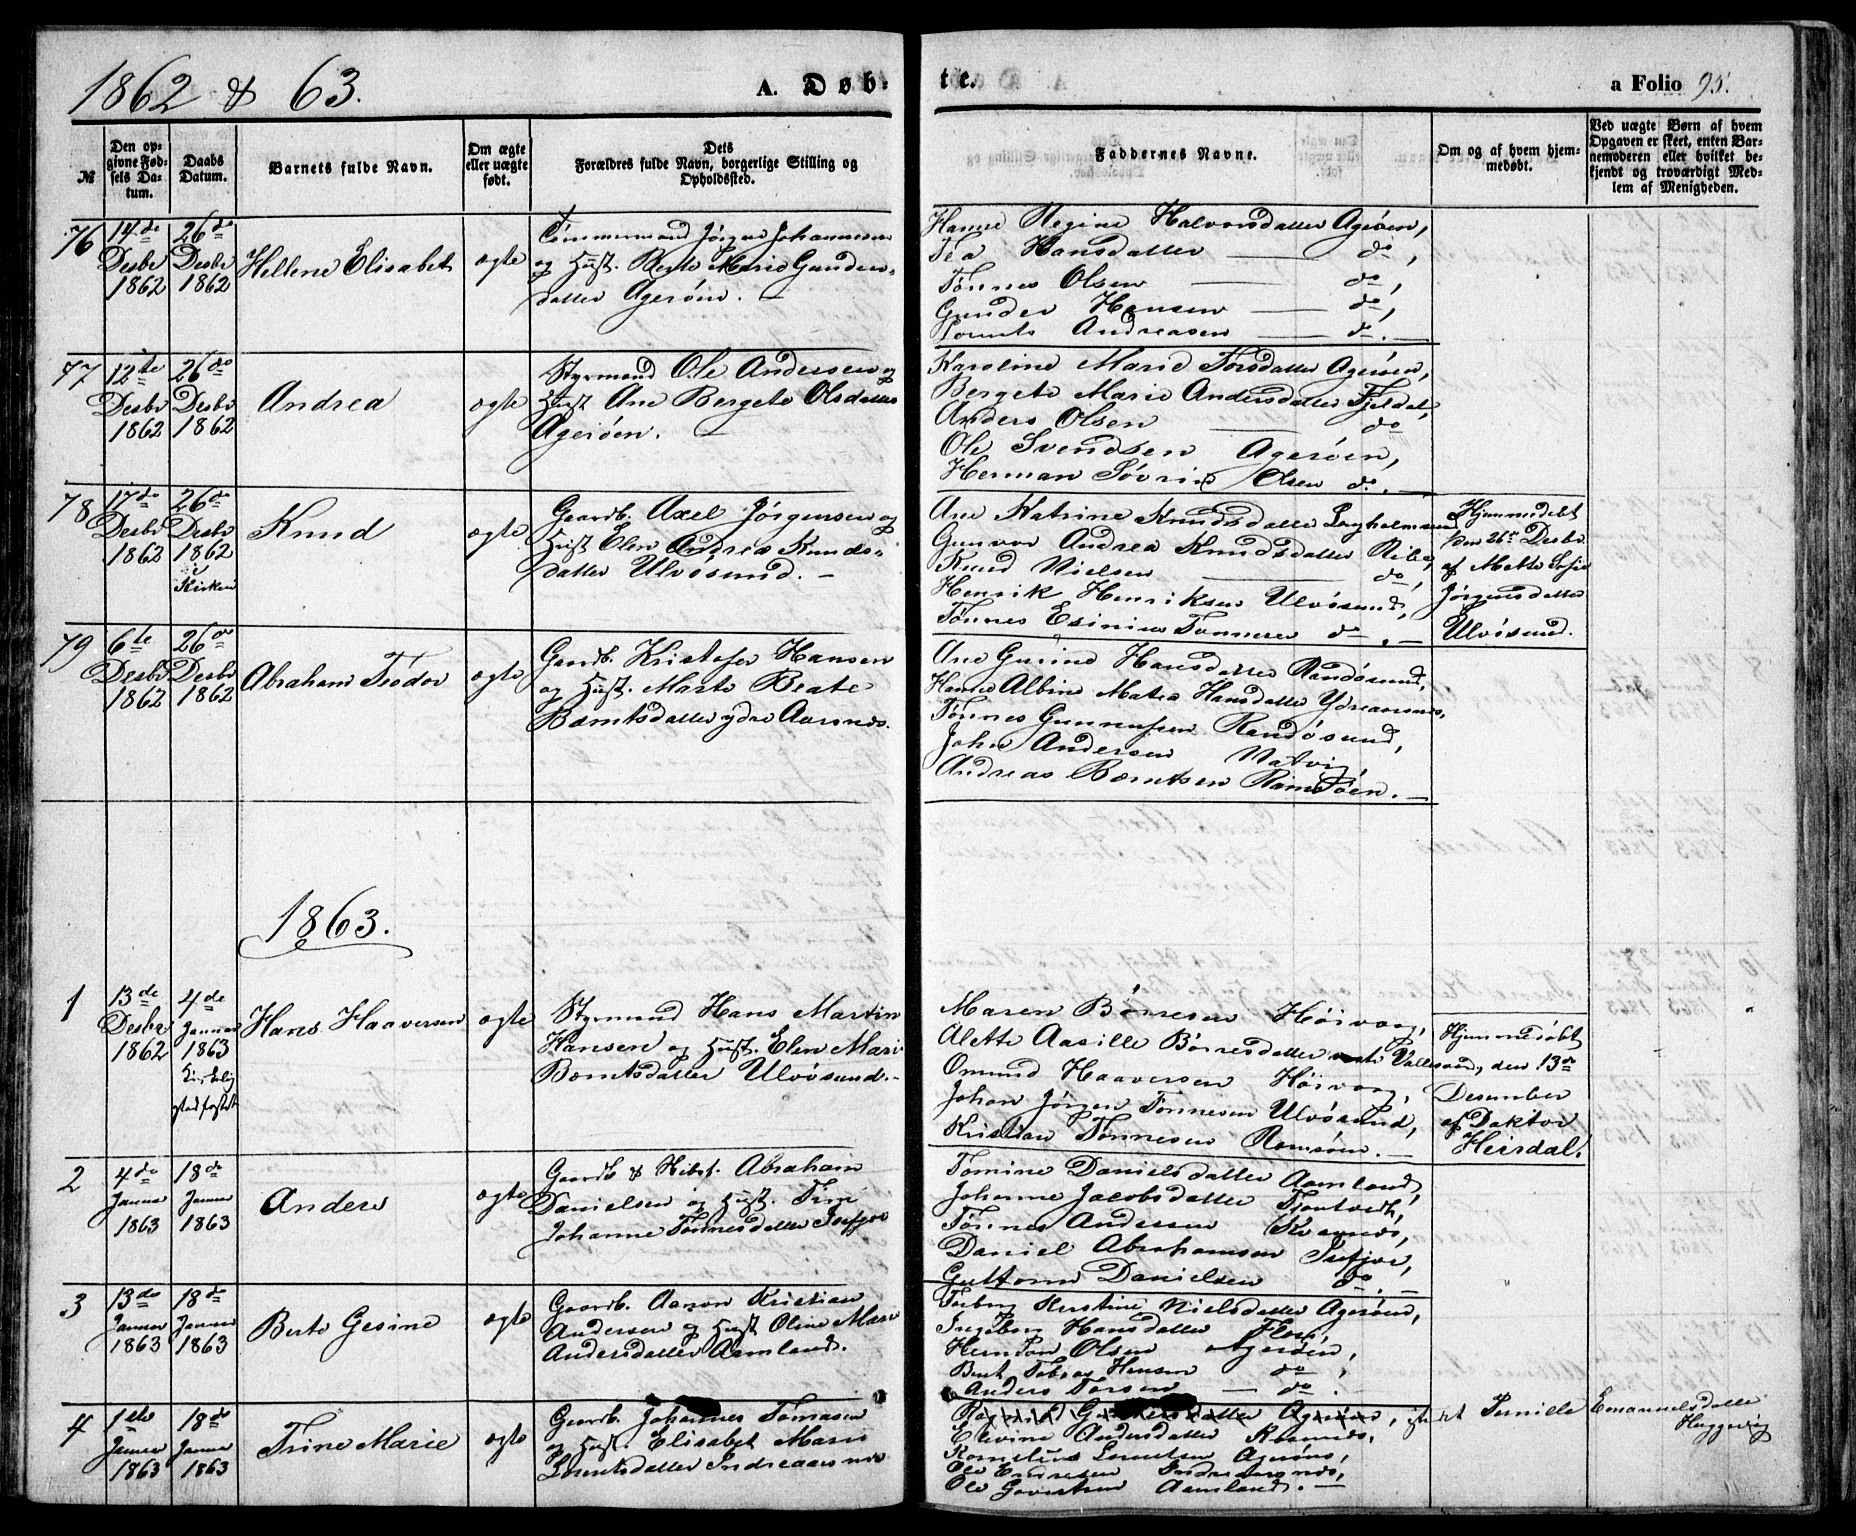 1862 & 63.
A. Døb-
te.
a Folio 95.
№
Den op-
givne Fød-
sels Da-
tum.
Daabs
Datum.
Barnets fulde Navn.
Om ægte
eller uægte
født.
Dets
Forældres fulde Navn, borgerlige Stilling og
Opholdssted.
Faddernes Navne.
Om og af hvem hjem-
medøbt.
Ved uægte Børn af hvem
Opgaven er skeet, enten Bar-
nemoderen eller hvilket be-
kjendt og troværdigt Med-
lem af Menigheden.
76
14de
Desbr
1862
26de
Desbr
1862
Hellene Elisabet
ægte
Tømmermand Jørgen Johannesen
og Hust. Berte Marie Gunders-
datter Agerøen. –
Hanne Regine Halvorsdatter Agerøen,
Tea Hansdatter — do,
Tønnes Olsen — do,
Gunder Hansen — do,
Andreasen — do. —
77
12te
Desbr
1862
26de
Desbr
1862
Andrea
ægte
Styrmand Ole Andersen og
Hust Ane Bergete Olsdatter
Agerøen. –
Karoline Marie Torsdatter Agerøen,
Bergete Marie Andersdatter Fjeldal,
Anders Olsen — do
Ole Svendsen Agerøen,
Herman Sövrin Olsen do. —
78
17de
Desbr
1862
26de
Desbr
1862
i
Kirken
Knud
ægte
Gaardb. Axel Jørgensen og
Hust Elen Andrea Knuds-
datter Ulvøsund. –
Ane Katrine Knudsdatter
Gunvor Andrea Knudsdatter Ribe,
Knud Nielsen — do,
Henrik Henriksen Ulvøsund,
Tønnes do. —
Hjemmedøbt
den 26de Desbr.
af Mette Sofie
Jørgensdatter
Ulvøsund.
79
6te
Desbr
1862
26de
Desbr
1862
Abraham Teodor
ægte
Gaardb. Kristofer Hansen
og Hust. Marte Beate
Berntsdatter ydre Aarsnes.
Ane Gurine Hansdatter Randøsund,
Hanne Albine Matea Hansdatter Ydreaarsnes,
Tønnes Gunnufsen Randøsund,
John Andersen Natvig,
Andreas Berntsen Ramsøen. —
1863.
1
13de
Desbr
1862
4de
Januar
1863
Hans Haaversen
ægte
Styrmand Hans Martin
Hansen og Hust. Elen Marie
Berntsdatter Ulvøsund. –
Maren Børresen Høivaag,
Alette Aasille Børresdatter Vallesund,
Omund Haaversen Høivaag,
Johan Jørgen Tønnesen Ulvøsund,
Kristian Tønnesen Ramsøen. —
Hjemmedøbt
den 13de
Desember
af Doktor
Heirdal.
2
4de
Januar
1863
18de
Januar
1863
Anders
ægte
Gaardb & Abraham
Danielsen og Hust. Trine
Johanne Tønnesdatter Isefjær
Tomine Danielsdatter Aamland,
Johanne Jacobsdatter Tjøntvedt,
Tønnes Andersen Kosmnes,
Daniel Abrahamsen Isefjær,
Guttorm Danielsen do. —
3
13de
Januar
1863
18de
Januar
1863
Berte Gesine
ægte
Gaardb. Aanon Kristian
Andersen og Hust Oline Marie
Andersdatter Aamland.
Kerstine Nielsdatter Agerøen,
Ingeborg Hansdatter
Herman Olsen Agerøen,
Bent Tobias Hansen do,
Anders Torsen — do.
4
1ste
Januar
1863
18de
Januar
1863
Trine Marie
ægte
Gaardb. Johannes Tomasen
og Hust. Elisabet Marie
Lorentsdatter Indreaarsnes
Agerøen, istedet Pernille Emanuelsdatter
Heggevig
Elevine Andersdatter Kosmnes,
Kornelius Lorentsen Agerøen,
Ole Endresen Indreaarsnes,
Ole Aamland. —